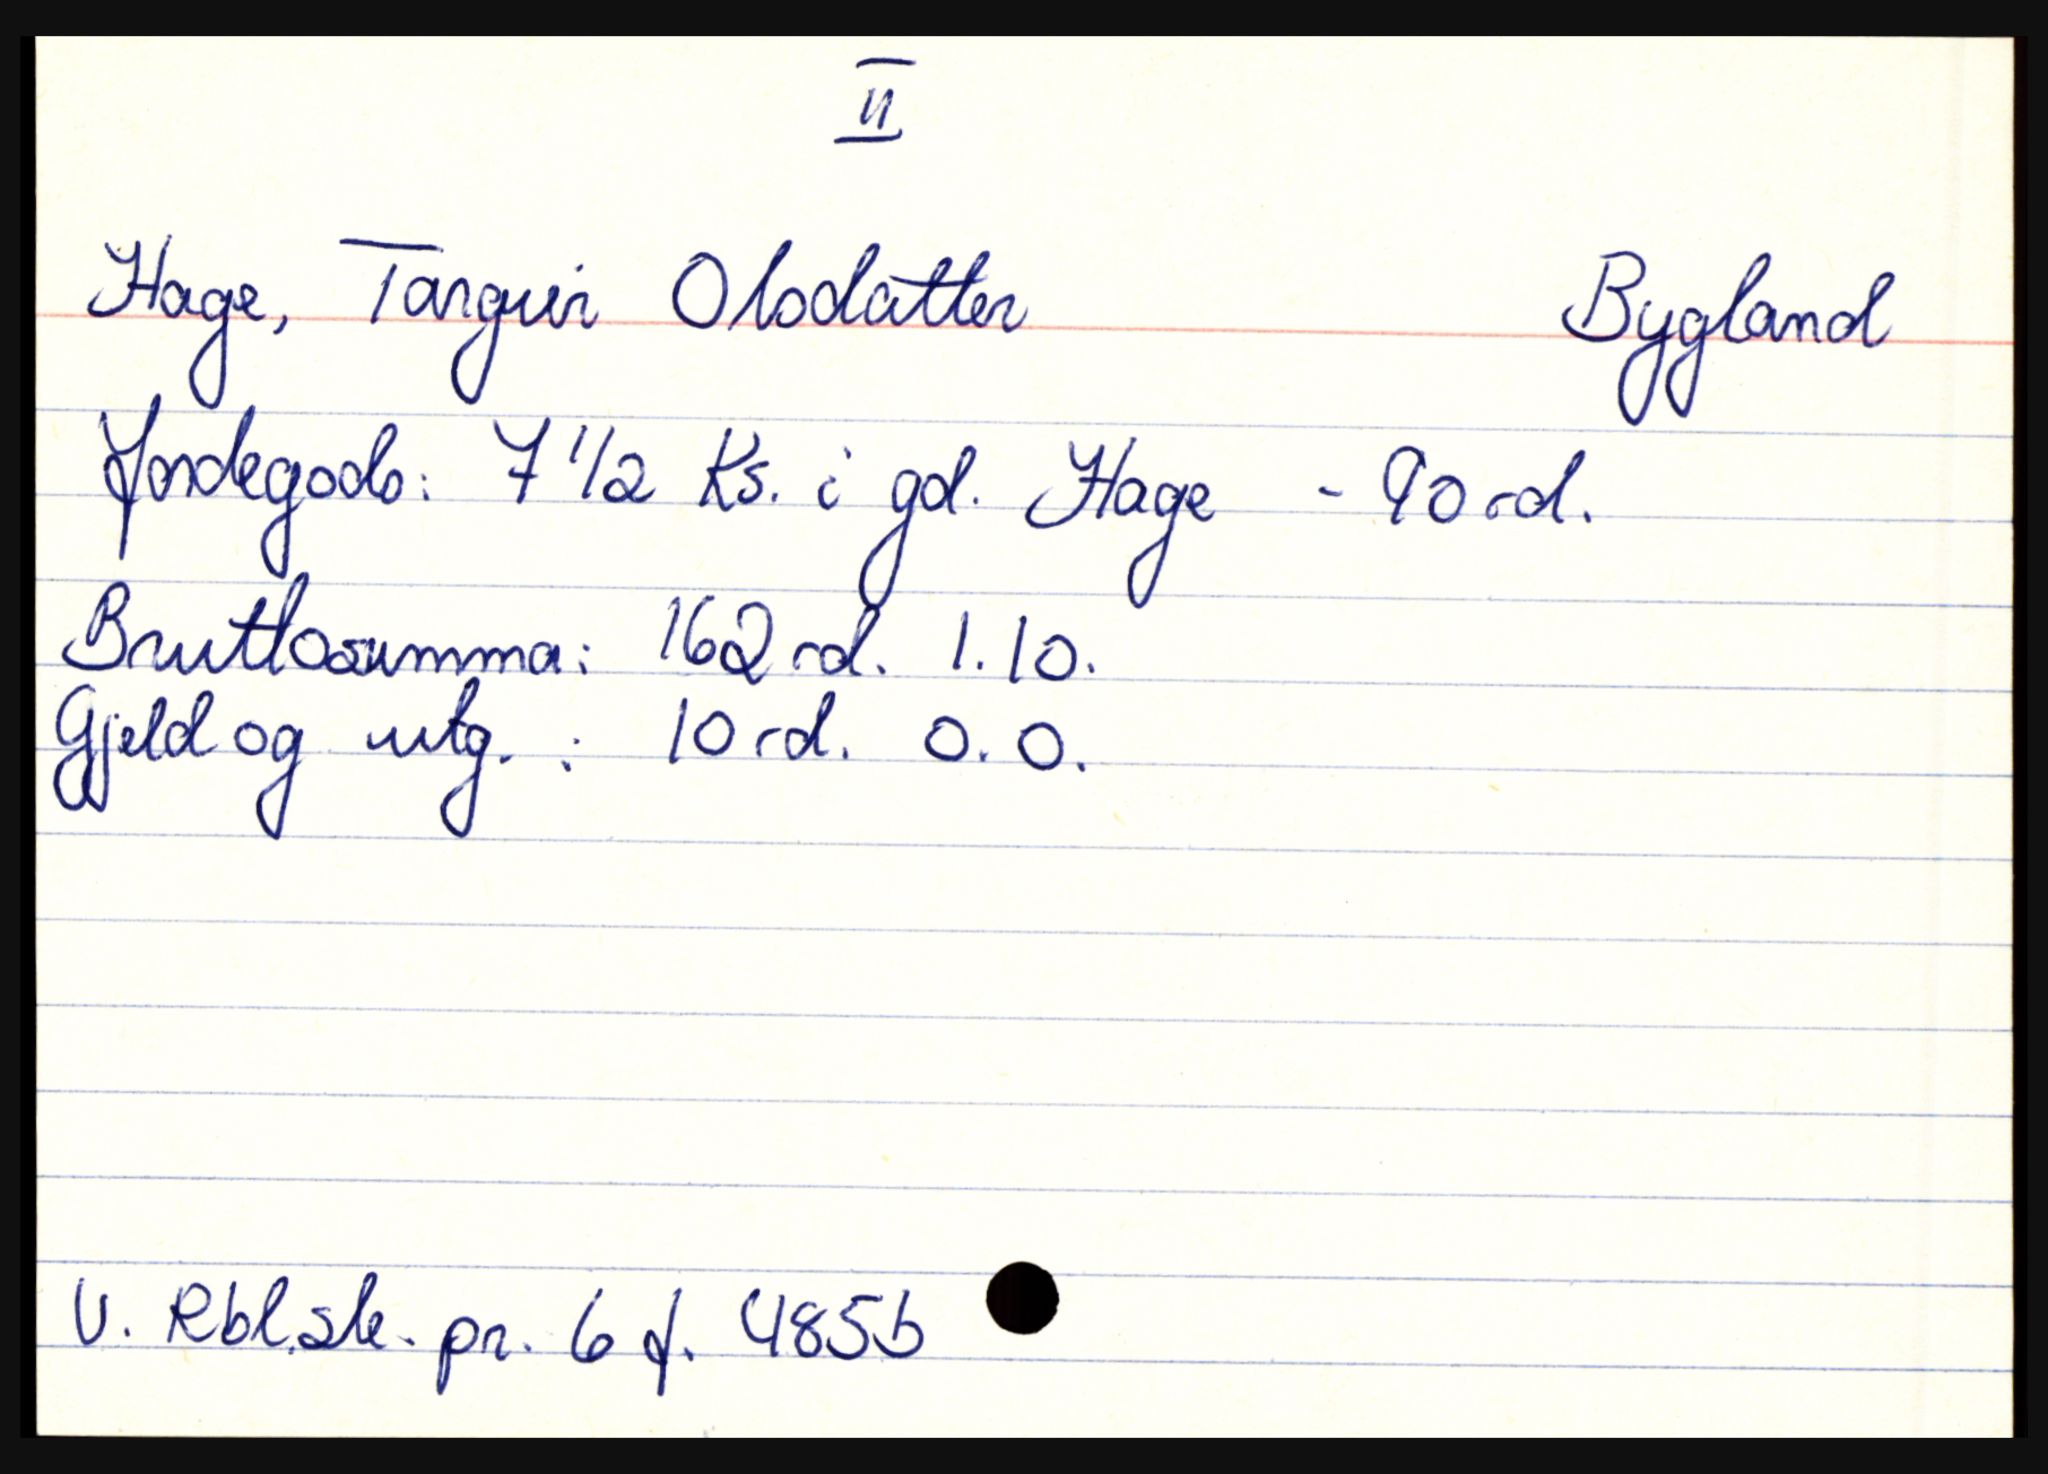 II
Hage, Targuir Olsdatter Bygland
Jordegods: 7 1/2 Ks. i gd. Hage - 90 rd.
Bruttosumma: 162 rd. 1.10.
Gjeld og utg. : 10 rd. 0.0.
V. Rbl.sk. pr. 6 f. 485b